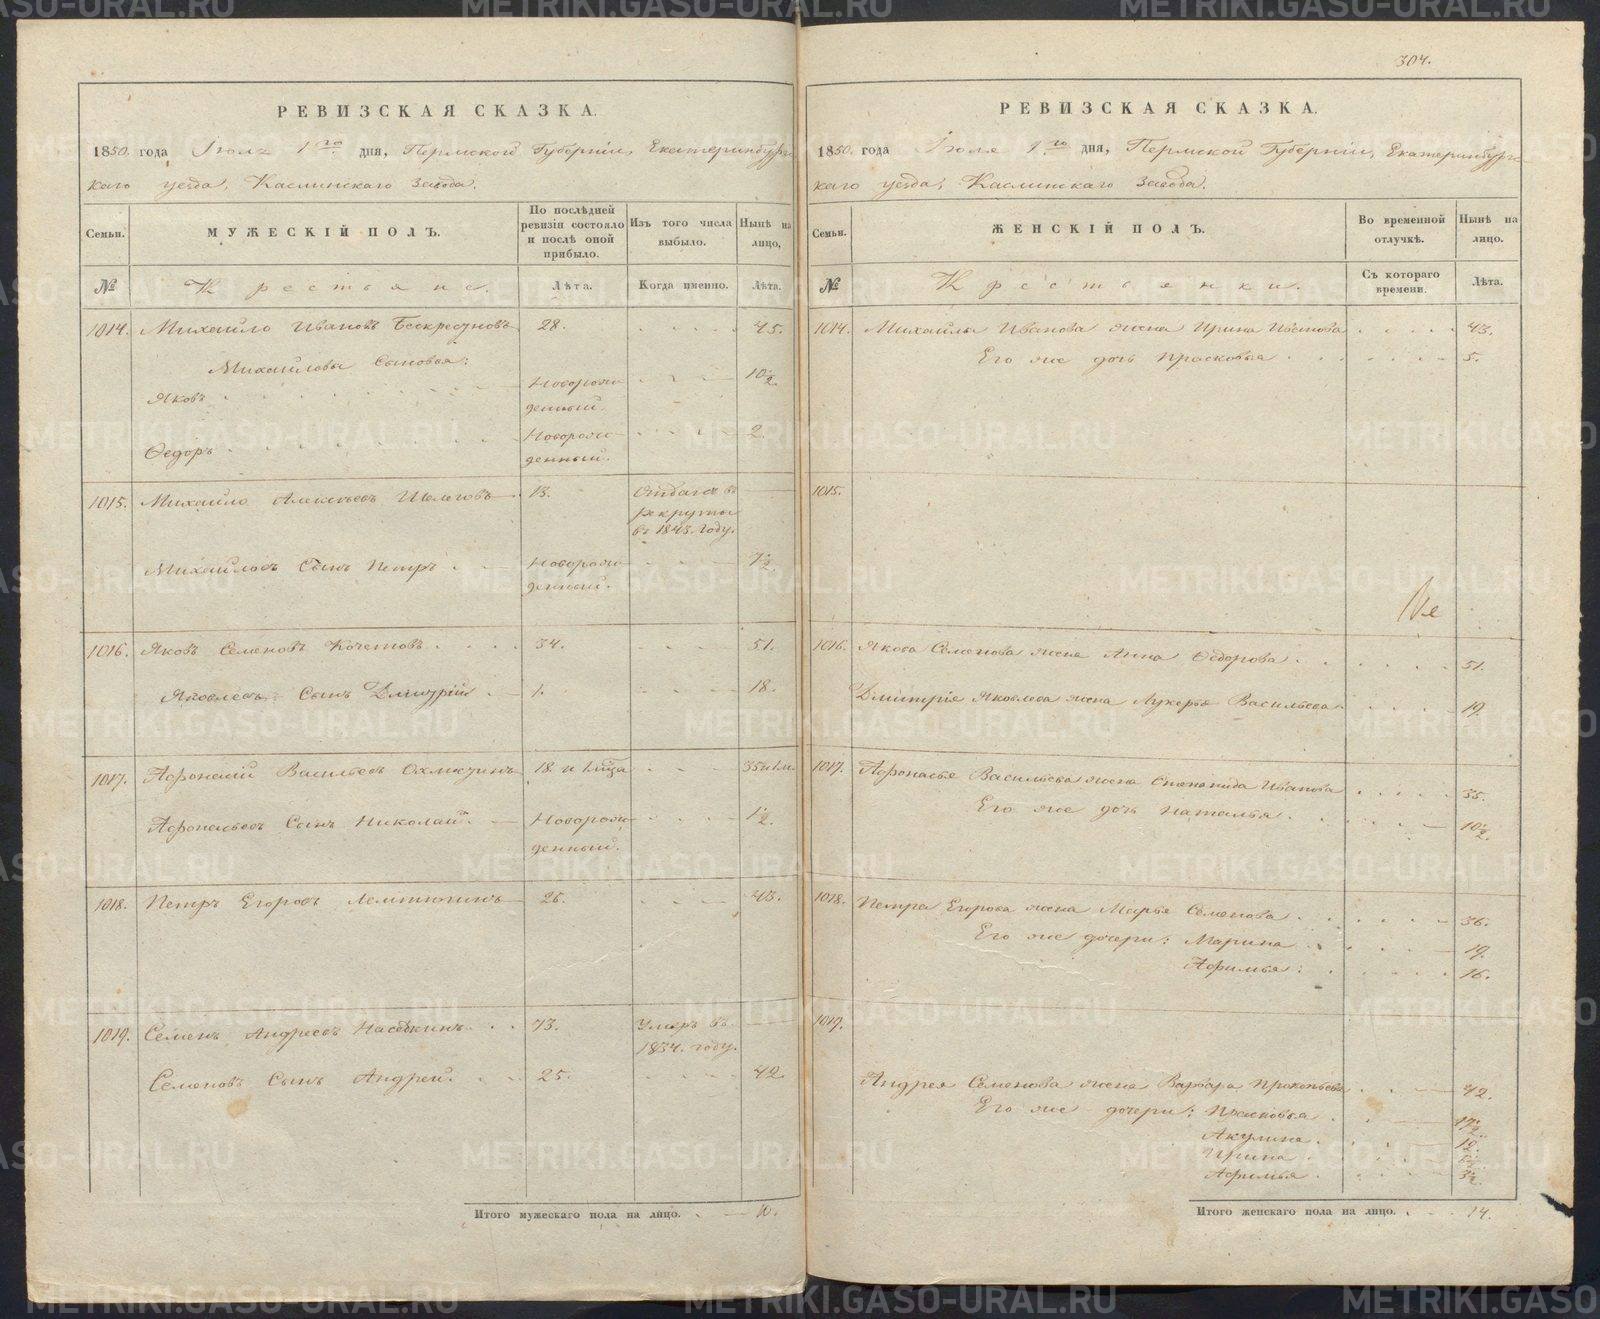 304.
РЕВИЗСКАЯ СКАЗКА.
1850. года Іюля 1го дня, Пермской Губерніи, Екатеринбургс-
каго уезда, Каслинскаго Завода.
Семьи.
МУЖЕСКІЙ ПОЛЪ.
По послѣдней ревизіи состояло и послѣ оной прибыло.
Изъ того числа выбыло.
Нынѣ на лицо,
№
Крестьяне.
Лѣта.
Когда именно.
Лѣта.
1014. Михайло Ивановъ Бескресновъ 28. 45.
Михайловы Сыновья:
Яковъ Новорож- 10½
денный.
Ѳедоръ Новорож- 2.
денный.
1015. Михайло Алексѣевъ 13. Отданъ въ
рекруты
въ 1843. Году.
Михайловъ Сынъ Петръ Новорож- 7½
денный.
1016. Яковъ Семеновъ Кочетовъ 34. 51.
Яковлевъ Сынъ Дмитрій 1. 18.
1017. Афонасій Васильевъ 18. и 1 м-ца 35 и 1 м.
Афонасьевъ Сынъ Николай Новорож- 1½.
денный.
1018. Петръ Егоровъ 26. 43.
1019. Семенъ Андреевъ Насѣдкинъ 73. Умеръ въ
1834. году.
Семеновъ Сынъ Андрей. 25. 42
Итого мужескаго пола на лицо. 10.
РЕВИЗСКАЯ СКАЗКА.
1850. года Іюля 1го дня, Пермской Губерніи, Екатеринбургс-
каго уезда, Каслинскаго Завода.
Семьи.
ЖЕНСКІЙ ПОЛЪ.
Во временной отлучкѣ.
Нынѣ на лицо.
№
Крестьянки.
Съ котораго времени.
Лѣта.
1014. Михайлы Иванова жена Ирина 43.
Его же дочь Прасковья 5.
1015.
1016. Якова Семенова жена Анна Ѳедорова 51.
Дмитрія Яковлева жена Лукерья Васильева 19.
1017. Афонасья Васильева жена Степанида Иванова 35.
Его же дочь Наталья 10½.
1018. Петра Егорова жена Марья Семенова 36.
Его же дочери: Марина 19.
Афимья: 16.
1019.
Андрея Семенова жена Варвара Прокопьева 42.
Его же дочери: Прасковья
Акулина
Ирина
Афимья 3½
Итого женскаго пола на лицо. 14.
METRIKI.GASO-URAL.RU